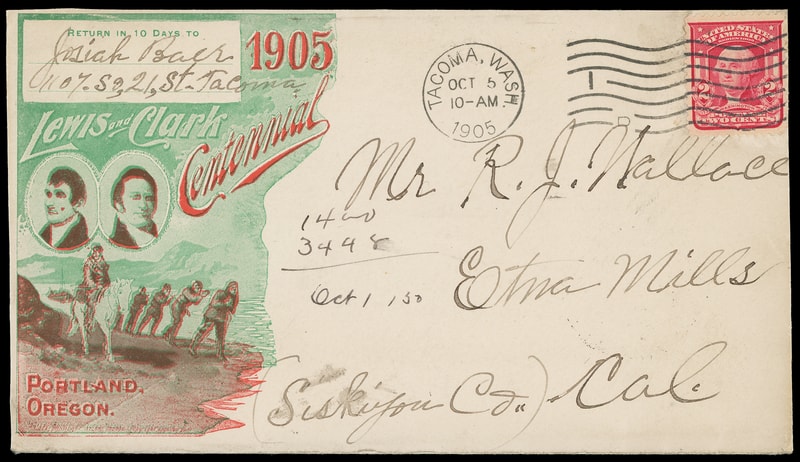 RETURN IN 10 DAYS TO
Josiah Baer
1107. So, 21, St. Tacoma
1905
Lewis and Clark
Centennial
PORTLAND,
OREGON.
TACOMA, WASH.
OCT 5
10-AM.
1905
UNITED STATES
OF AMERICA
2 2
TWO CENTS
Mr R. J. Wallace
1400
3448
Oct 1, 150
Etna Mills
(Siskiyou Co.,) Cal